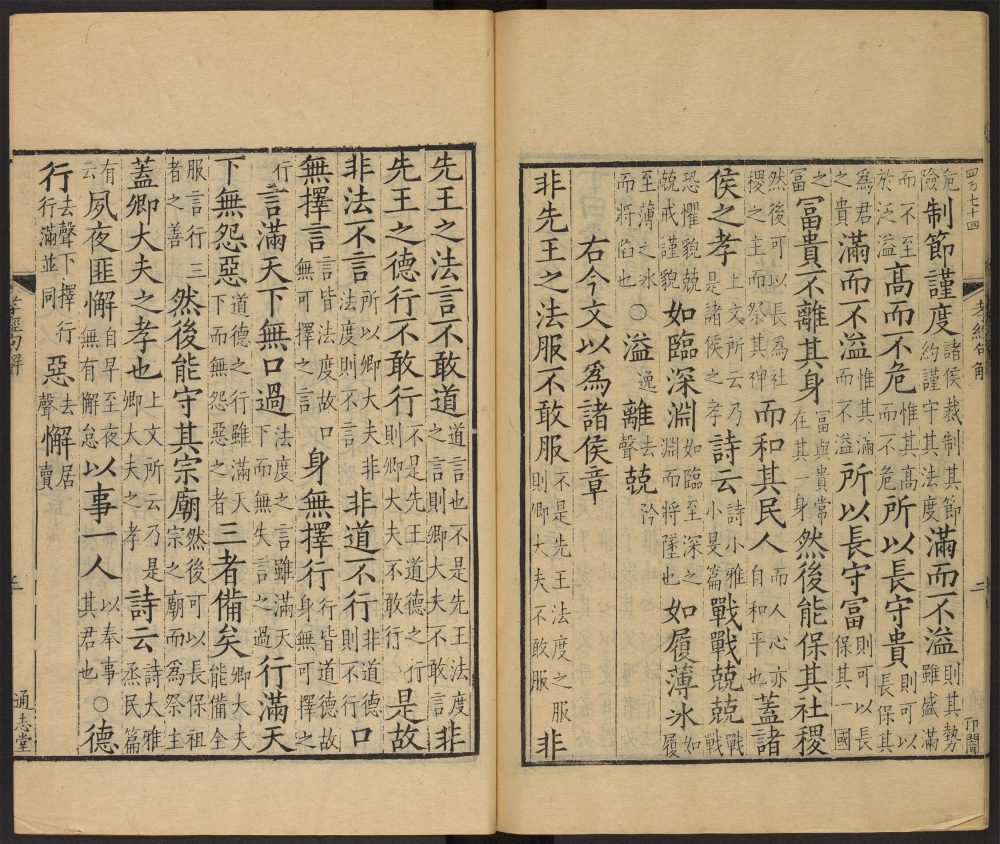 四万七十四 孝經句解 二
危險制節謹度諸侯裁制其節約謹守其法度滿而不溢則其勢雖盛滿
而不至於泛溢高而不危惟其高而不危所以長守貴則可以長保其
為君之貴滿而不溢惟其滿而不溢所以長守富則可以長保其一國
之富富貴不離其身富與貴常在其一身然後能保其社稷
然後可以長為社稷之主而祭其神而和其民人而人心亦自和平也蓋諸
侯之孝上文所云乃是諸侯之孝詩云詩小雅小旻篇戰戰兢兢戰戰
恐懼貌兢兢戒謹貌如臨深淵如臨至深之淵而將墜也如履薄冰如履
至薄之冰而將陷也○溢逸離去聲兢矜
右今文以為諸侯章
非先王之法服不敢服不是先王法度之服則卿大夫不敢服非
先王之法言不敢道道言也不是先王法度之言則卿大夫不敢言非
先王之德行不敢行不是先王道德之行則卿大夫不敢行是故
非法不言所以卿大夫非法度則不言非道不行非道德則不行口
無擇言言皆法度故口無可擇之言身無擇行行皆道德故身無可擇之
行言滿天下無口過法度之言雖滿天下而無失言之過行滿天
下無怨惡道德之行雖滿天下而無怨惡之者三者備矣卿大夫能備全
服言行三者之善然後能守其宗廟然後可以長保祖宗之廟而為祭主
蓋卿大夫之孝也上文所云乃是卿大夫之孝詩云詩大雅烝民篇
有云夙夜匪懈自早至夜無有懈怠以事一人以奉事其君也○德
行去聲下擇行行滿並同惡去聲懈居賣
孝經句解 三 通志堂